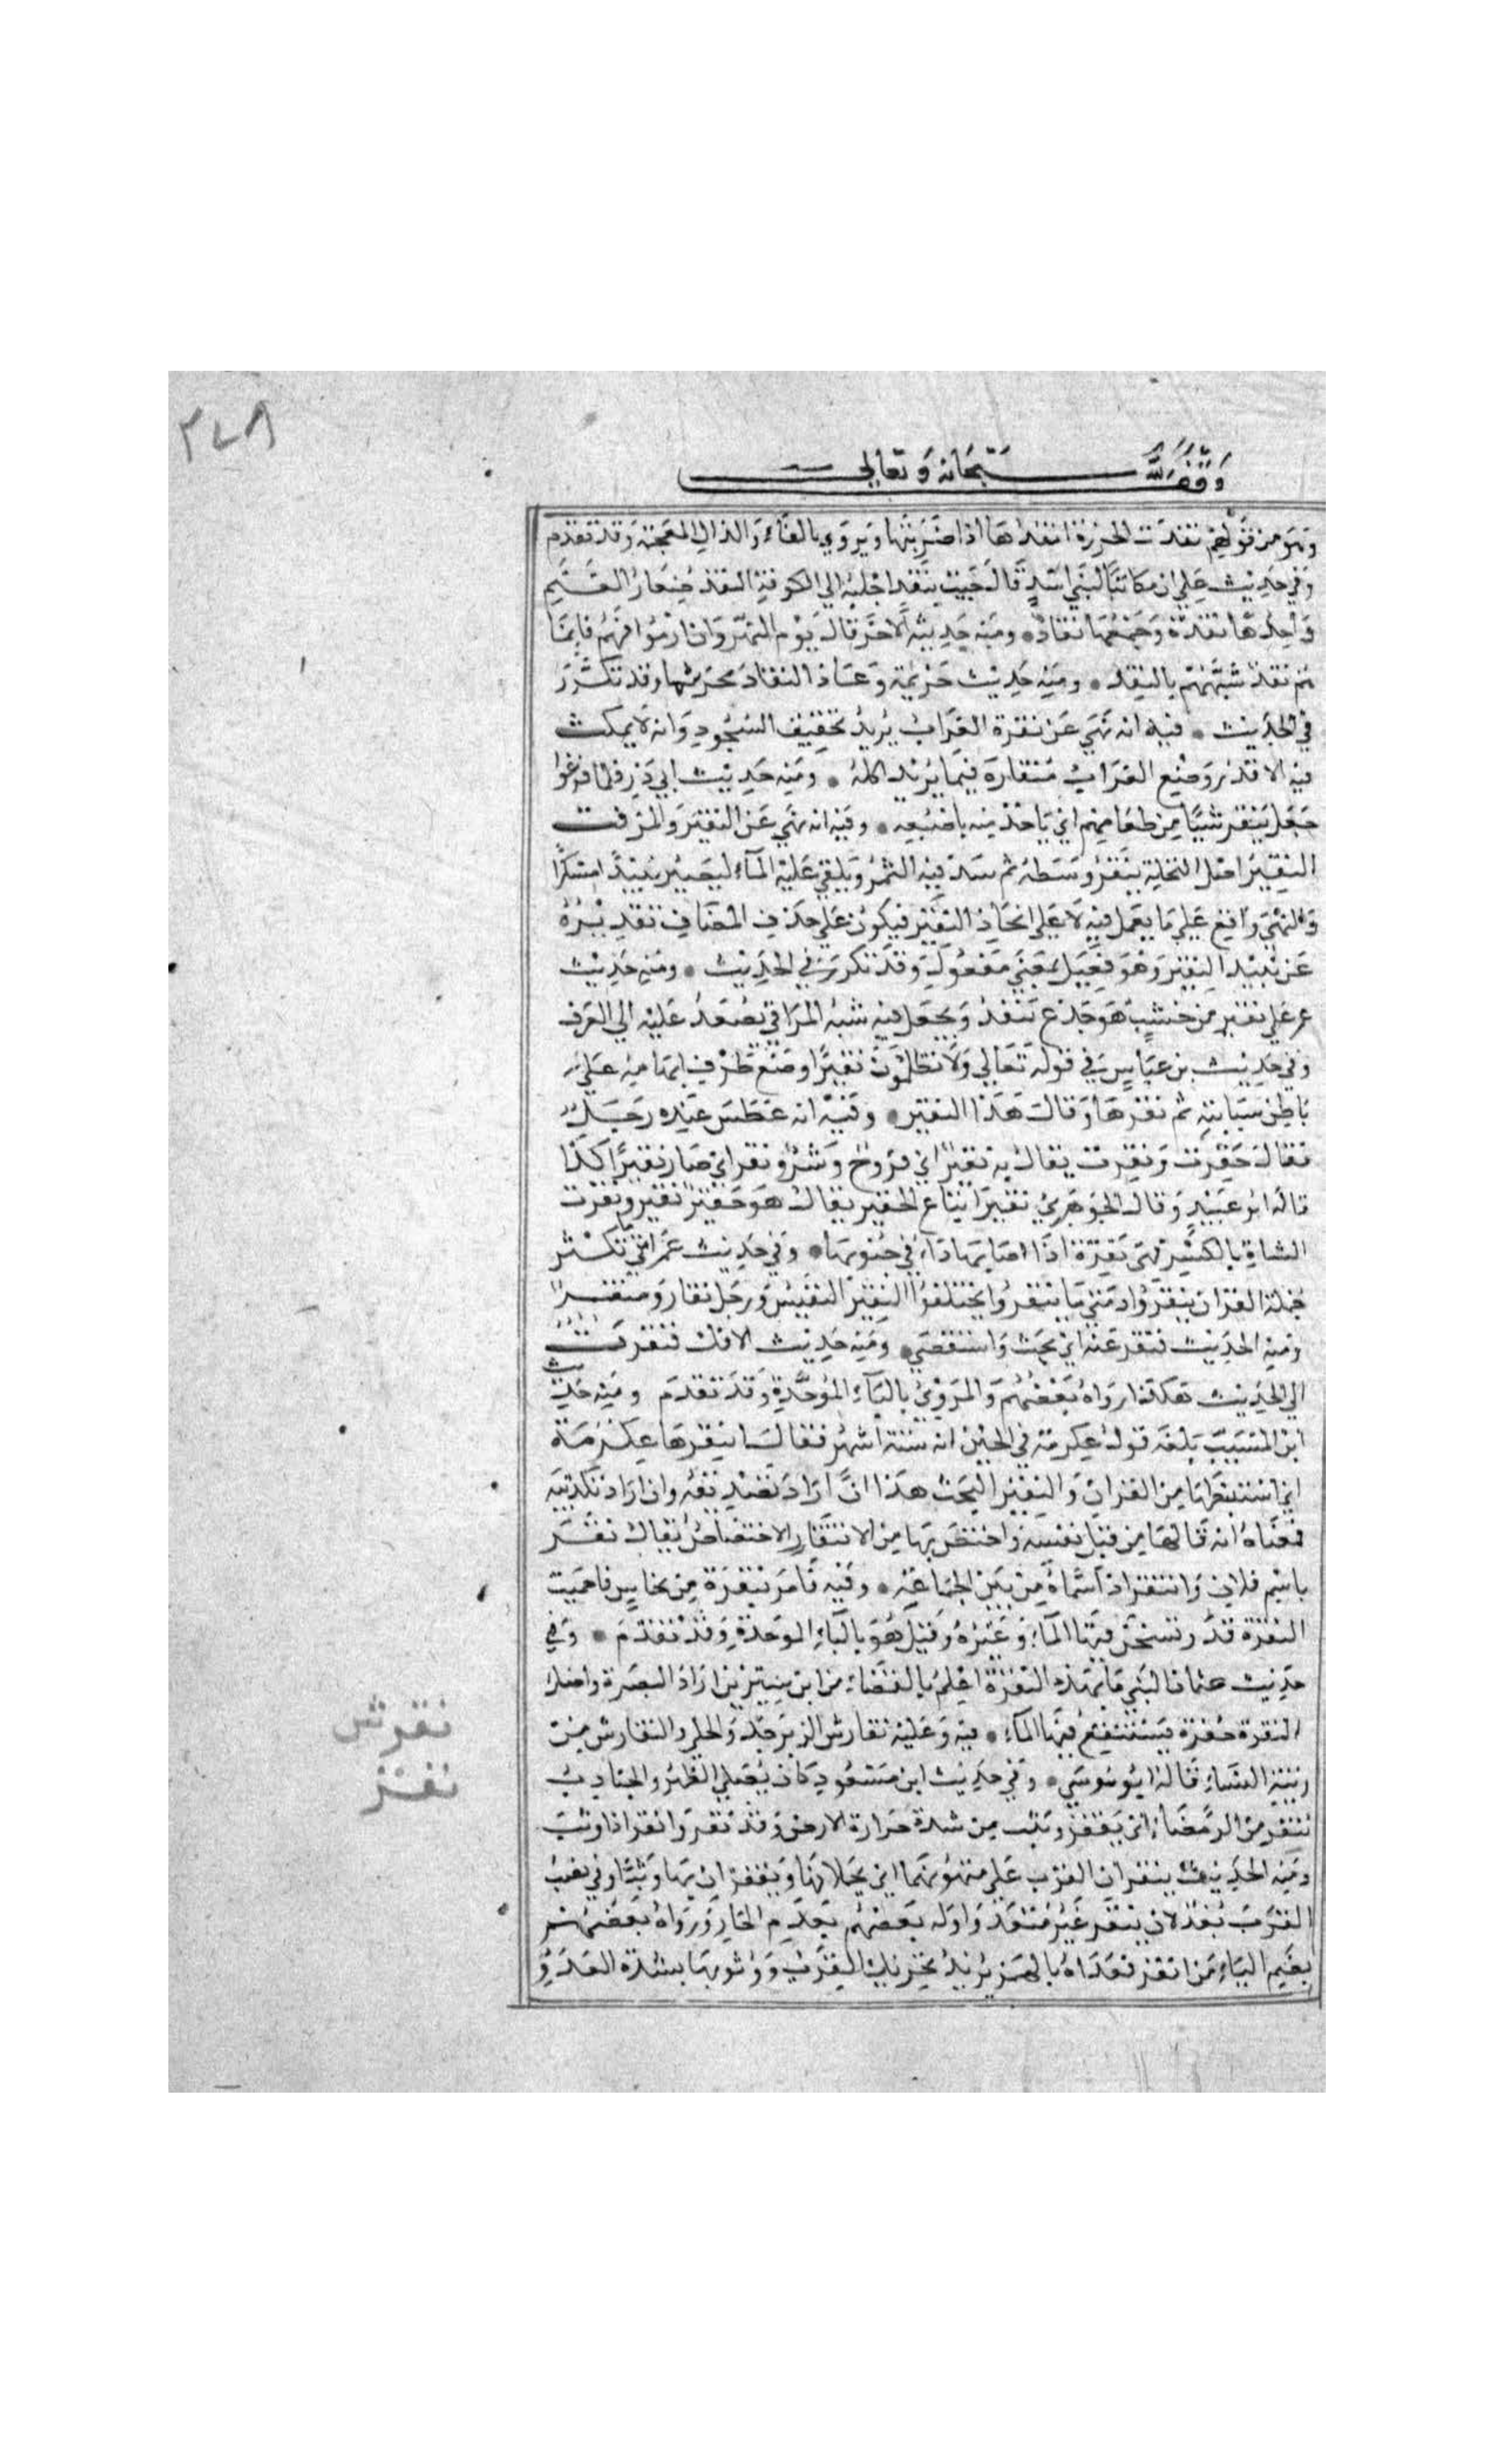 ٣٧٨
وقف لله سبحانه وتعالى
وهو من قولهم نقدت الجوزة انقدها اذا ضربتها ويروي بالفاء والذال المعجمة وقد تقدم
وفي حديث علي ان مكاتبا لبني اسد قال جيت بنقد اجلبه الي الكوفة النقد صغار الغنم
واحدها نقدة وجمعها نقاد ومنه حديثه الاخر قال يوم النهروان ارموهم فانما
هم نقد شبههم بالنقد ومنه حديث خزيمة وعاد النقاد مجرنثما وقد تكرر
في الحديث فيه انه نهي عن نقرة الغراب يريد تخفيف السجود وانه لا يمكث
فيه الا قدر وضع الغراب منقاره فيما يريد اكله ومنه حديث ابي ذر فلما فرغوا
جعل ينقر شيا من طعامهم اي ياخذ منه باصبعه وفيه انه نهي عن النقير والمزفت
النقير اصل النخلة ينقر وسطه ثم ينبذ فيه التمر ويلقي عليه الماء ليصير نبيذا مسكرا
والنهي واقع علي ما يعمل فيه لا علي اتخاذ النقير فيكون علي حذف المضاف تقديره
عن نبيذ النقير وهو فعيل بمعني مفعول وقد تكرر في الحديث ومنه حديث
عمر علي نقير من خشب هو جذع ينقر ويجعل فيه شبه المراقي يصعد عليه الي الغرف
وفي حديث بن عباس في قوله تعالي ولا تظلمون نقيرا وضع طرف ابهامه علي
باطن سبابته ثم نقرها وقال هذا النقير وفيه انه عطس عنده رجل
فقال حقرت ونقرت يقال به نقير اي قروح وبثر ونقر اي صار نقيرا كذا
قاله ابو عبيد وقال الجوهري نقير اتباع الحقير يقال هو حقير نقير ونقرت
الشاة بالكسر فهي نقرة اذا اصابها داء في جنوبها وفي حديث عمر متي ما تكثر
حملة القران ينقروا ومتي ما ينقروا يختلفوا النقير التفتيش ورجل نقار ومنقر
ومنه الحديث فنقر عنه اي بحث واستقصي ومنه حديث الافك فنقرت
الي الحديث هكذا رواه بعضهم والمروي بالباء الموحدة وقد تقدم ومنه حديث
ابن المسيب بلغه قول عكرمة في الحين انه ستة اشهر فقال انتقرها عكرمة
اي استنبطها من القران والنقير البحث هذا ان اراد تصديقه وان اراد تكذيبه
فمعناه انه قالها من قبل نفسه واختص بها من الانتقار الاختصاص يقال نقر
باسم فلان وانتقر اذا سماه من بين الجماعة وفيه فامر بنقرة من نحاس فاحميت
النقرة قدر يسخن فيها الماء وغيره وقيل هو بالباء الموحدة وقد تقدم وفي
حديث عثمان البتي ما بهذه النقرة اعلم بالقضاء من ابن سيرين اراد البصرة واصل
النقرة حفرة يستنقع فيها الماء فيه وعليه نقارس الزبرجد والحلي والنقارس من
زينة النساء قاله ابو موسي وفي حديث ابن مسعود كان يصلي الظهر والجنادب
تنقز من الرمضاء اي تقفز وتثب من شدة حرارة الارض وقد نقز وانقز اذا وثب
ومنه الحديث ينقزان القرب علي متونهما اي يحملانها ويقفزان بها وثبا وفي نصب
القرب بعد لان ينقز غير متعد واوله بعضهم بعدم الجار ورواه بعضهم
بضم الياء من انقز فعداه بالهمز يريد تحريك القرب ووثوبها بشدة العدو
نقرش
نقز